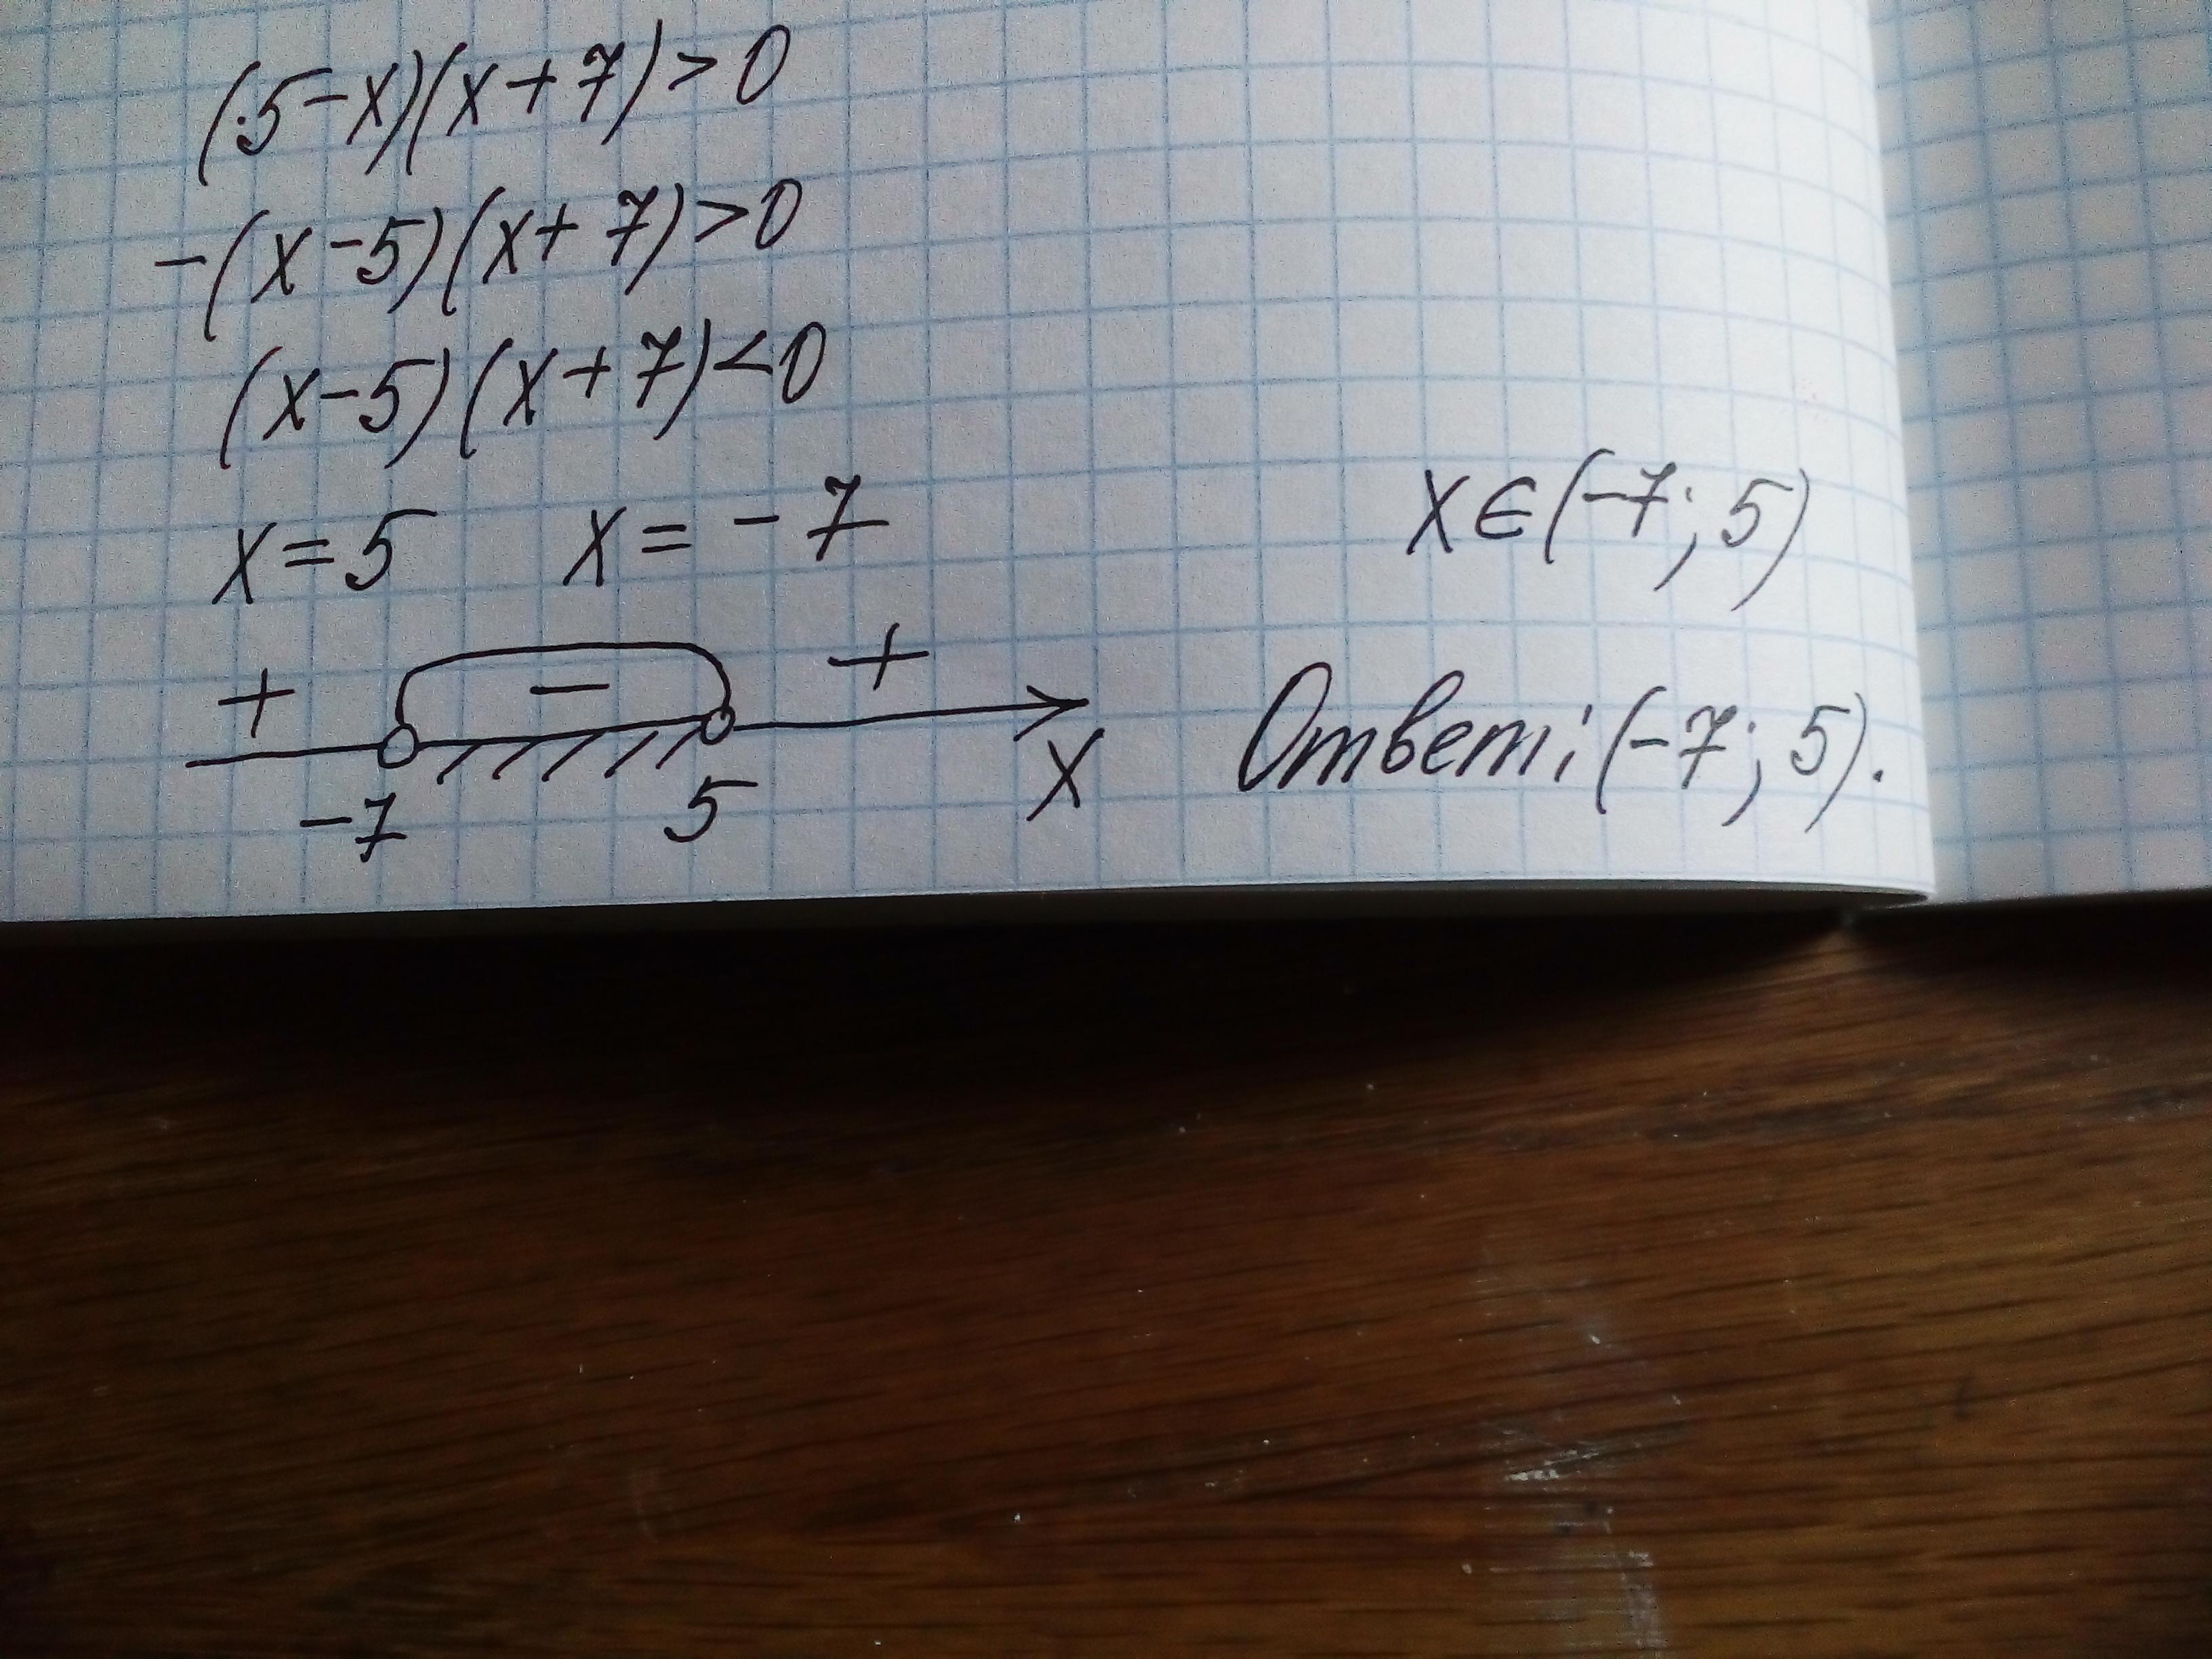 (5-x)(x+7)>0
-(x-5)(x+7)>0
(x-5)(x+7)<0
x=5 x=-7
+ - +
-7 5 x
x∈(-7;5)
Ответ: (-7;5).